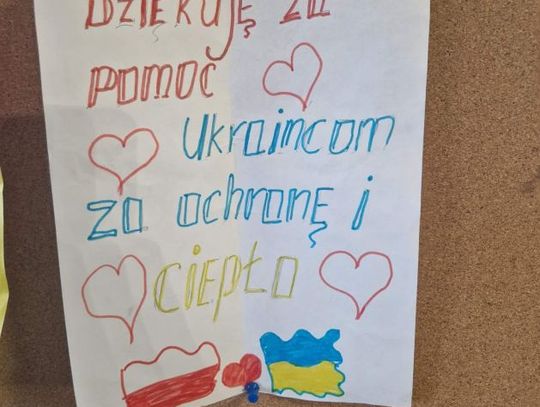 Dziękuję za
pomoc
Ukraincom
za ochronę i
ciepło